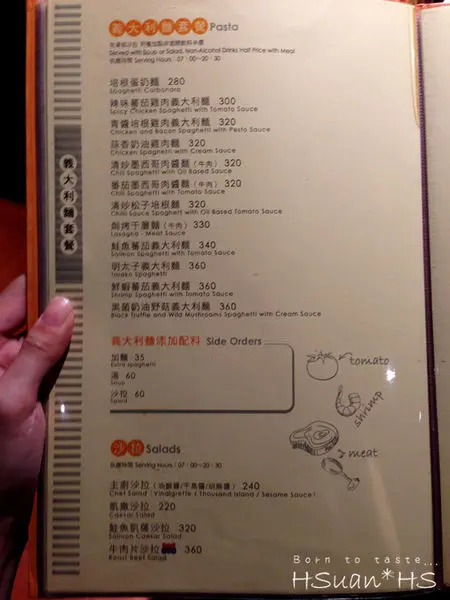 義大利麵套餐 Pasta
Served with Soup or Salad, Non-Alcohol Drinks Half Price with Meal
供應時間 Serving Hours : 07 : 00~20 : 30
培根蛋奶麵 280
Spaghetti Carbonara
辣味蕃茄雞肉義大利麵 300
Spicy Chicken Spaghetti with Tomato Sauce
青醬培根雞肉義大利麵 320
Chicken and Bacon Spaghetti with Pesto Sauce
蒜香奶油雞肉麵 320
Chicken Spaghetti with Cream Sauce
清炒墨西哥肉醬麵 (牛肉) 320
Chili Spaghetti with Oil Based Sauce
蕃茄墨西哥肉醬麵 (牛肉) 320
Chili Spaghetti with Tomato Sauce
清炒松子培根麵 320
Chili Sauce Spaghett with Oil Based Tomato Sauce
焗烤千層麵 (牛肉) 330
Lasagna - Meat Sauce
鮭魚蕃茄義大利麵 340
Salmon Spaghetti with Tomato Sauce
明太子義大利麵 360
鮮蝦蕃茄義大利麵 360
Shrimp Spaghetti with Tomato Sauce
黑菌奶油野菇義大利麵 360
Black Truffle and Wild Mushrooms Spaghetti with Cream Sauce
義大利麵套餐
義大利麵添加配料 Side Orders
加麵 35
Extra spaghetti
湯 60
Soup
沙拉 60
Salad
tomato
shrimp
meat
沙拉 Salads
供應時間 Serving Hours : 07 : 00~20 : 30
主廚沙拉 (油醋醬/千島醬/胡麻醬) 240
Chef Salad ( Vinaigrette / Thousand Island / Sesame Sauce )
凱撒沙拉 220
Caesar Salad
鮭魚凱薩沙拉 320
Salmon Caesar Salad
牛肉片沙拉 360
Roast Beef Salad
Born to taste...
HSuan*HS